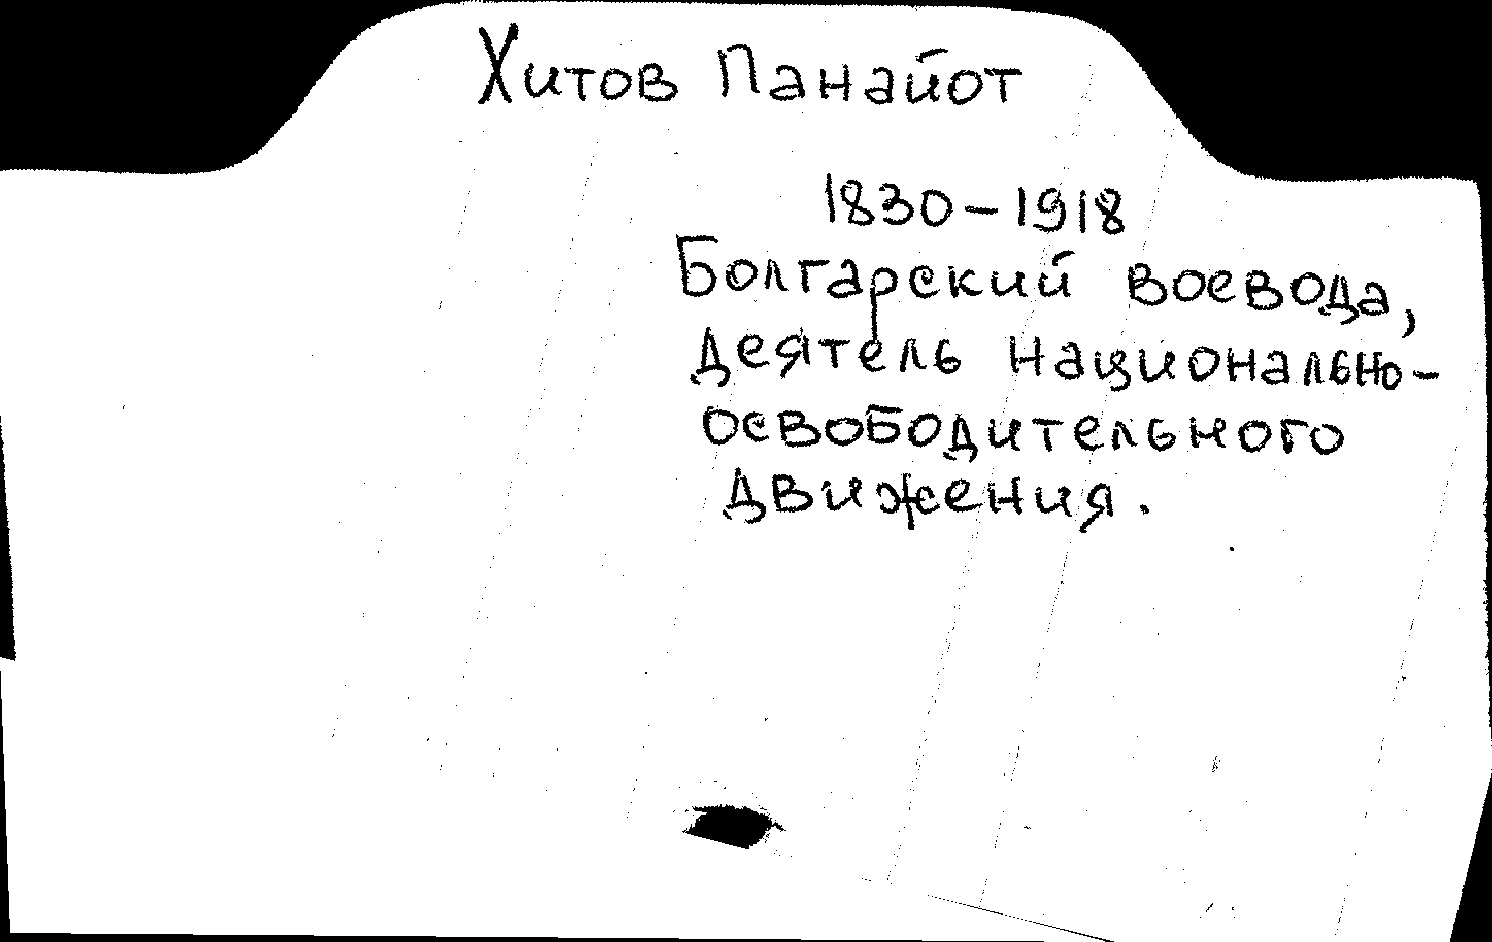 Хитов Панайот
1830-1918
Болгарский воевода,
деятель национально-
освободительного
движения.